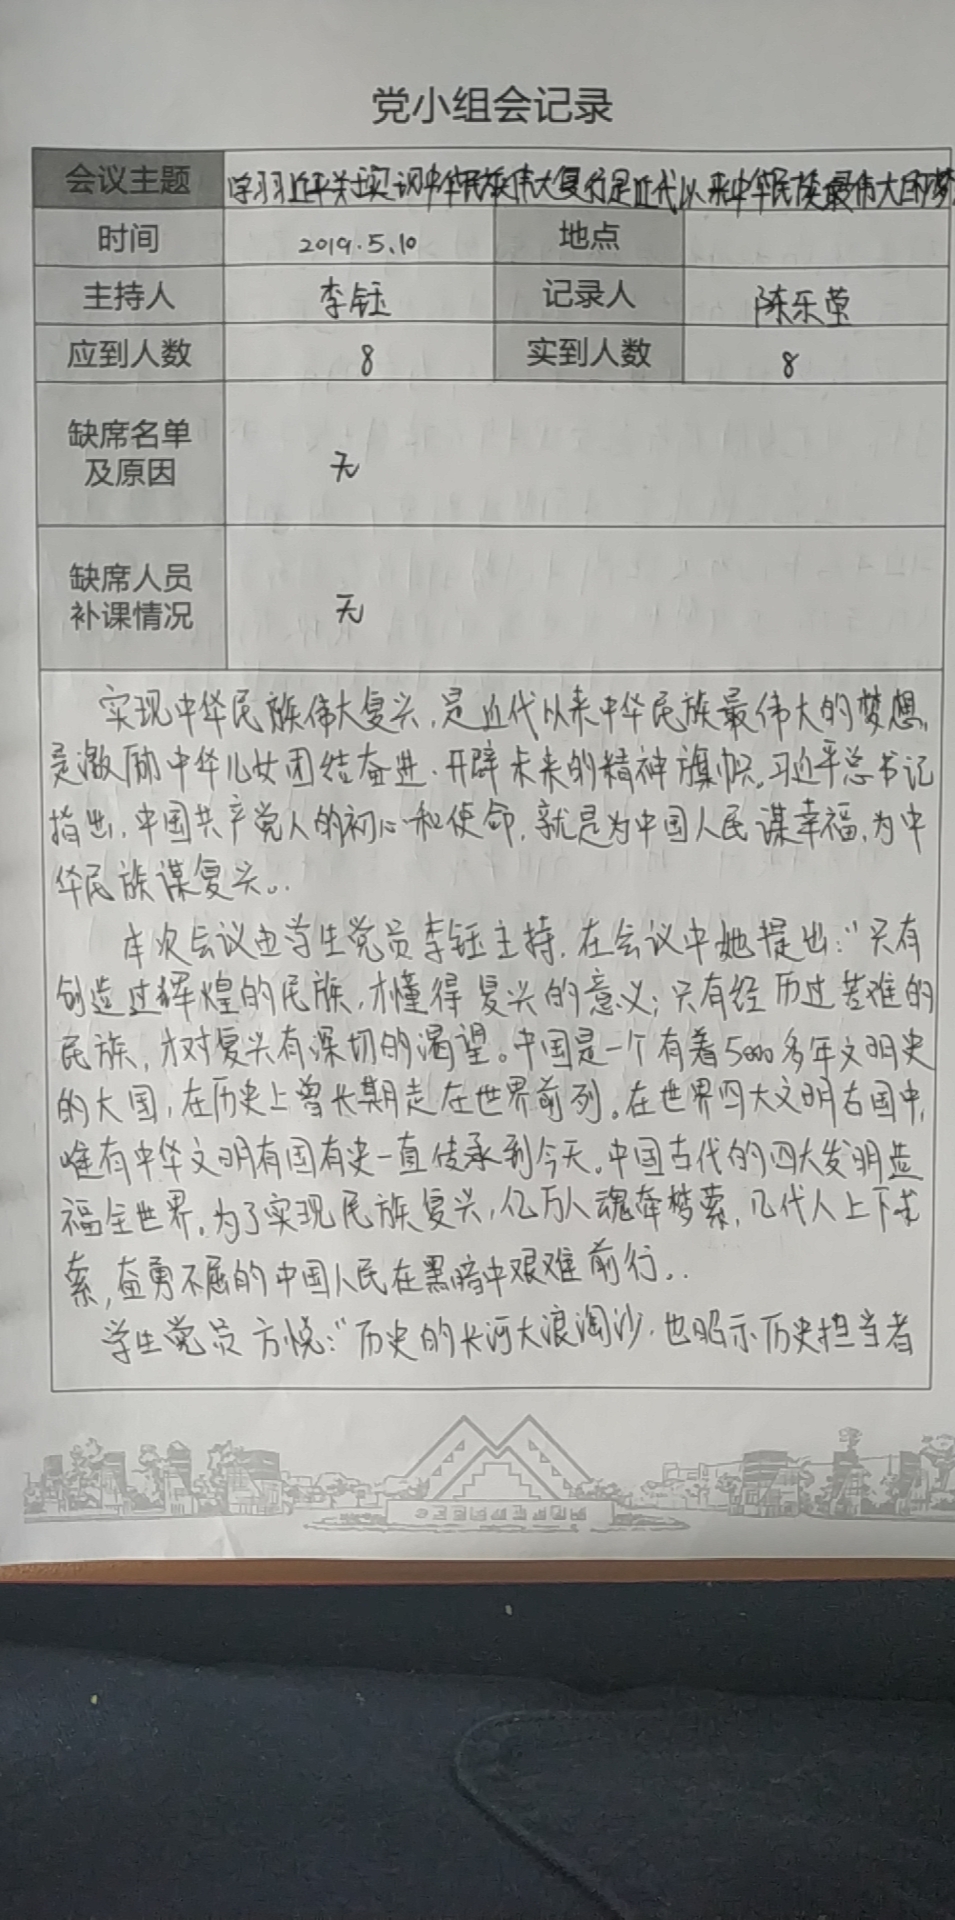 党小组会记录
会议主题 学习习近平关于实现中华民族伟大复兴是近代以来中华民族最伟大的梦
时间 2019.5.10 地点
主持人 李钰 记录人 陈乐莹
应到人数 8 实到人数 8
缺席名单
及原因
无
缺席人员
补课情况
无
实现中华民族伟大复兴,是近代以来中华民族最伟大的梦想,
是激励中华儿女团结奋进、开辟未来的精神旗帜。习近平总书记
指出,中国共产党人的初心和使命,就是为中国人民谋幸福,为中
华民族谋复兴。
本次会议由学生党员李钰主持,在会议中她提出:“只有
创造过辉煌的民族,才懂得复兴的意义;只有经历过苦难的
民族,才对复兴有深切的渴望。中国是一个有着5000多年文明史
的大国,在历史上曾长期走在世界前列。在世界四大文明古国中,
唯有中华文明有国有史一直传承到今天。中国古代的四大发明造
福全世界。为了实现民族复兴,亿万人魂牵梦萦,几代人上下求
索,奋勇不屈的中国人民在黑暗中艰难前行。
学生党员方悦:“历史的长河大浪淘沙,也昭示历史担当者